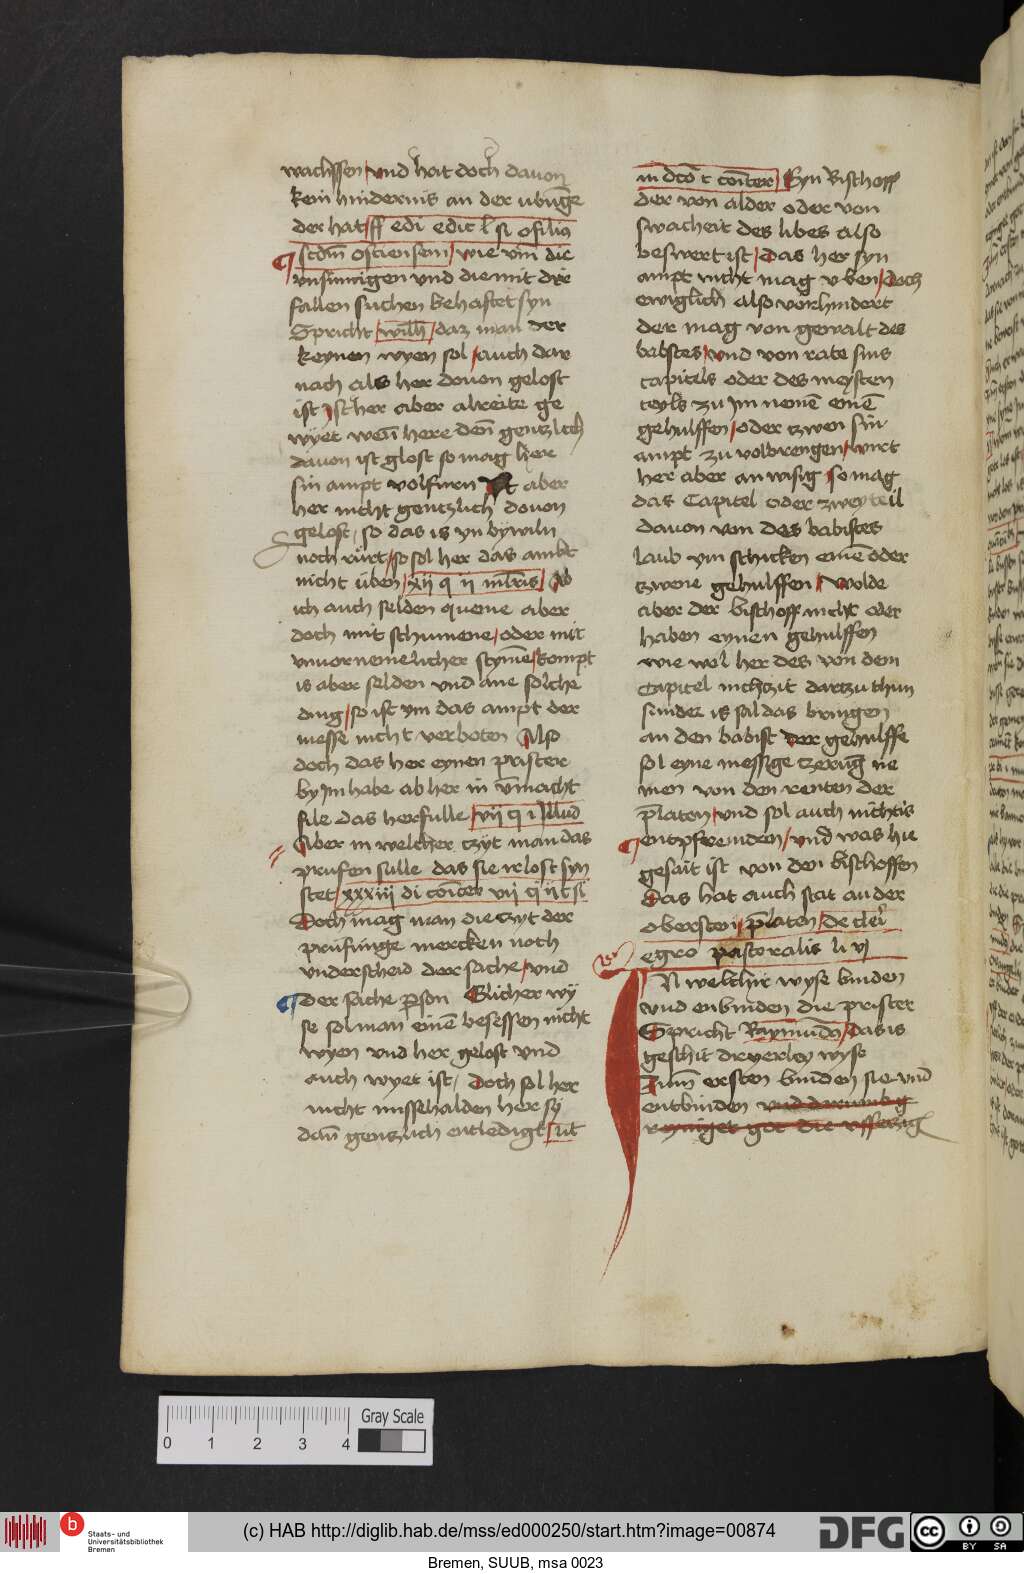 wachssen und hat doch davon
kein hindernis an der ubunge
der hat ff edi edic l si ofilius
scdm ostiensem wie vm die
unsinnigen und die mit die
fallen suchen behaftet syn
Spricht wilh daz man der
keynen wyen sol auch dar
nach als her dovon gelost
ist Ist her aber alreite ge
wyet wen here den gentzlich
davon ist glost so mag her
sin ampt volfuren Ist aber
her nicht gentzlich dovon
gelost so das is yn bywiln
noch rurt so sol her das ambt
nicht uben xij q ij Ab
ich auch selden queme aber
doch mit schumene oder mit
unvornemelicher stymme kompt
is aber selden und ane solche
ding so ist ym das ampt der
messe nicht verboten Also
doch das her eynen prister
by Im habe ab her in vnmacht
file das her fulle vij q i Illud
Aber in welcher tzyt man das
prufen sulle das sie irlost syn
stet xxxiij di vij q ij
Doch mag man die tzyt der
prufunge mercken noch
underscheid der sache und
der sache person Glicher wy
se sol man eine besessen nicht
wyen und her gelost und
auch wyet ist Doch sol her
nicht missehalden her sy
dan gentzlich entledigt sut
in dco c Eyn Bischoff
der von alder oder von
swacheit des libes also
beswert ist das her syn
ampt nicht mag uben doch
ewiglich also vorhindert
der mag von gewalt des
babstes und von rate sins
capitels oder des meysten
teyls zu Im nemen einen
gehulffen oder tzwen sin
ampt zu volbrengen wirt
her aber anwisig so mag
das Capitel oder zwey teil
davon von des babistes
laub ym schicken einen oder
tzwene gehulffen Wolde
aber der bischoff nicht oder
haben eynen gehulffen
wie wol her des von dem
Capitel nichtzit dartzu thun
sunder is sal das bringen
an den babist der gehulffe
sol eyne messige tzerung ne
men von den renten der
platen und sol auch nichtis
entpfremden und was hie
gesait ist von den bischoffen
das hat auch stat an der
obersten platen de cleri
egro pastoralis li vj
IN welchir wyse binden
und enbinden die prister
Spricht Raymundus das is
geschit dreyerley wyse
Zum ersten binden sie und
entbinden und dorumbig
reyniget got die
Gray Scale
0 1 2 3 4
Staats- und
Universitätsbibliothek
Bremen
(c) HAB http://diglib.hab.de/mss/ed000250/start.htm?image=00874
DFG
cc BY SA
Bremen, SUUB, msa 0023